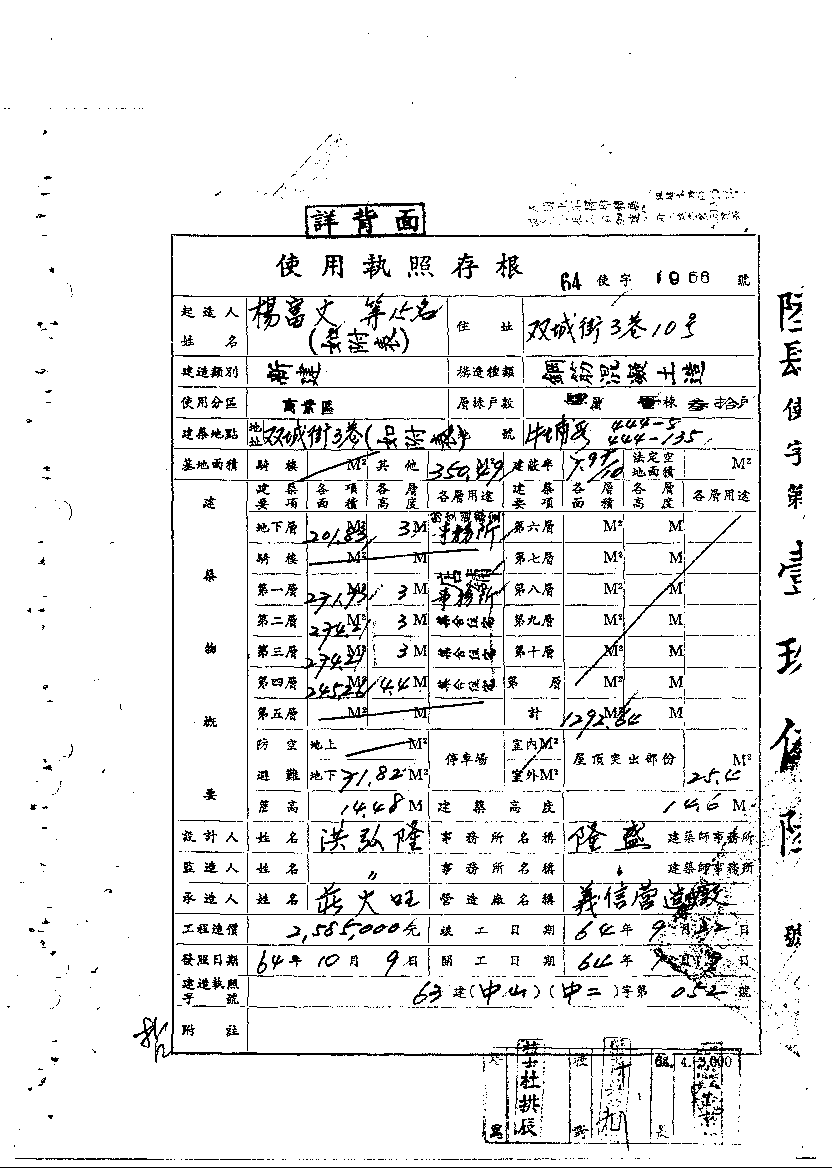 詳背面
使用執照存根 64 使字 1966 號
起造人姓名 楊富文 等15名 住址 双城街3巷10号
(如附表)
建造類別 新建 構造種類 鋼筋混凝土造
使用分區 商業區 層棟戶數 層 棟 叁拾戶
建築地點 地址 双城街3巷(如附表) 號 牛埔段 444-5
444-135
基地面積 騎樓 M² 其他 350.49 M² 建蔽率 7.97/10 法定空地面積 M²
建築物概要
建築要項 各項面積 各層高度 各層用途 建築要項 各層面積 各層高度 各層用途
地下層 201.83 M² 3 M 事務所 第六層 M² M
騎樓 M² M 第七層 M² M
第一層 271.73 M² 3 M 店舖 事務所 第八層 M² M
第二層 274.21 M² 3 M 集合住宅 第九層 M² M
第三層 274.21 M² 3 M 集合住宅 第十層 M² M
第四層 245.26 M² 4.4 M 集合住宅 第 層 M² M
第五層 M² M 計 1292.84 M² M
防空避難 地上 M² 停車場 室內 M² 屋頂突出部份 M²
地下 71.82 M² 室外 M² 25.4
簷高 14.48 M 建築高度 14.6 M
設計人 姓名 洪弘隆 事務所名稱 隆盛 建築師事務所
監造人 姓名 〃 事務所名稱 〃 建築師事務所
承造人 姓名 莊火旺 營造廠名稱 義信營造廠
工程造價 2,585,000元 竣工日期 64年9月12日
發照日期 64年10月9日 開工日期 64年 月 日
建造執照字號 63建(中山)(中二)字第052號
附註
64. 4. 3,000
陸肆使字第壹玖陸陸號